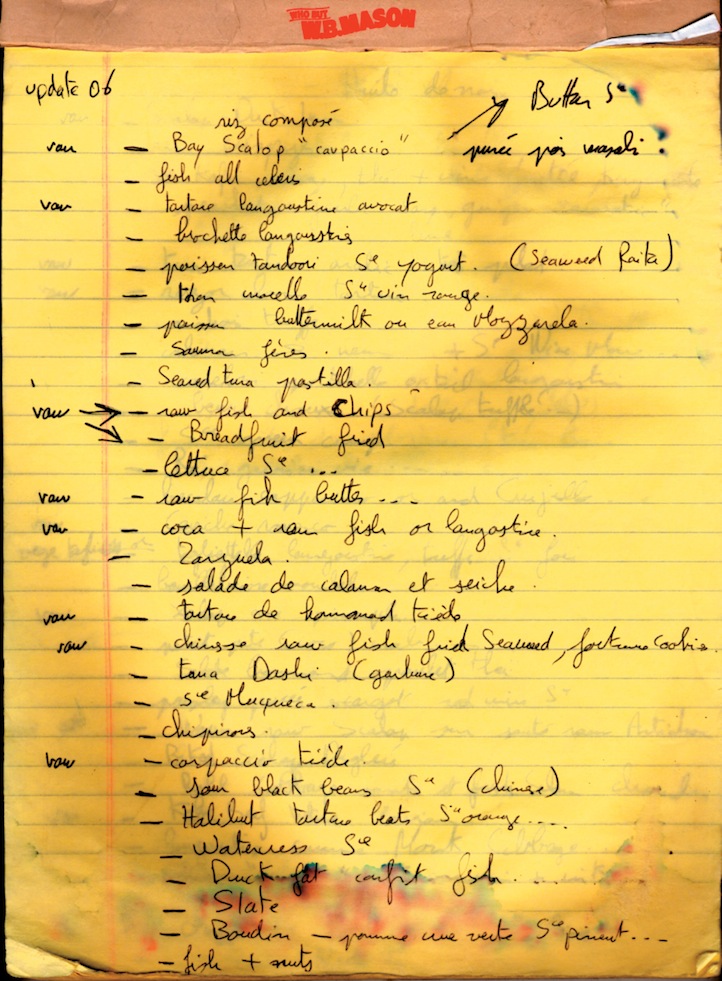 WHO BUT
W.B.MASON
update 06
Button Sce
riz composé
raw – Bay Scalop "carpaccio" purée pois wasabi
– fish all celeris
raw – tartare langoustine avocat
– brochette langoustines
– poisson tandoori Sce yogourt. (Seaweed Raita)
– thon Sce vin rouge.
– poisson buttermilk ou eau Mozzarela.
– Saumon fèves.
– Seared tuna pastilla.
raw → – raw fish and Chips
– Breadfruit fried
– lettuce Sce ...
raw – raw fish butter...
raw – coca + raw fish or langostine.
– Zarzuela.
– salade de calamar et seiche.
raw – tartare de homard tiède
raw – chinese raw fish fried Seaweed, fortune cookie.
– tuna Dashi (garbure)
– Sce Muqueca.
– chipirons.
raw – carpaccio tiède.
– sour black beans Sce (chinese)
– Halibut tartare beets Sce orange....
– Watercress Sce
– Duck fat confit fish.
– Slate
– Boudin – pomme verte Sce piment...
– fish + nuts